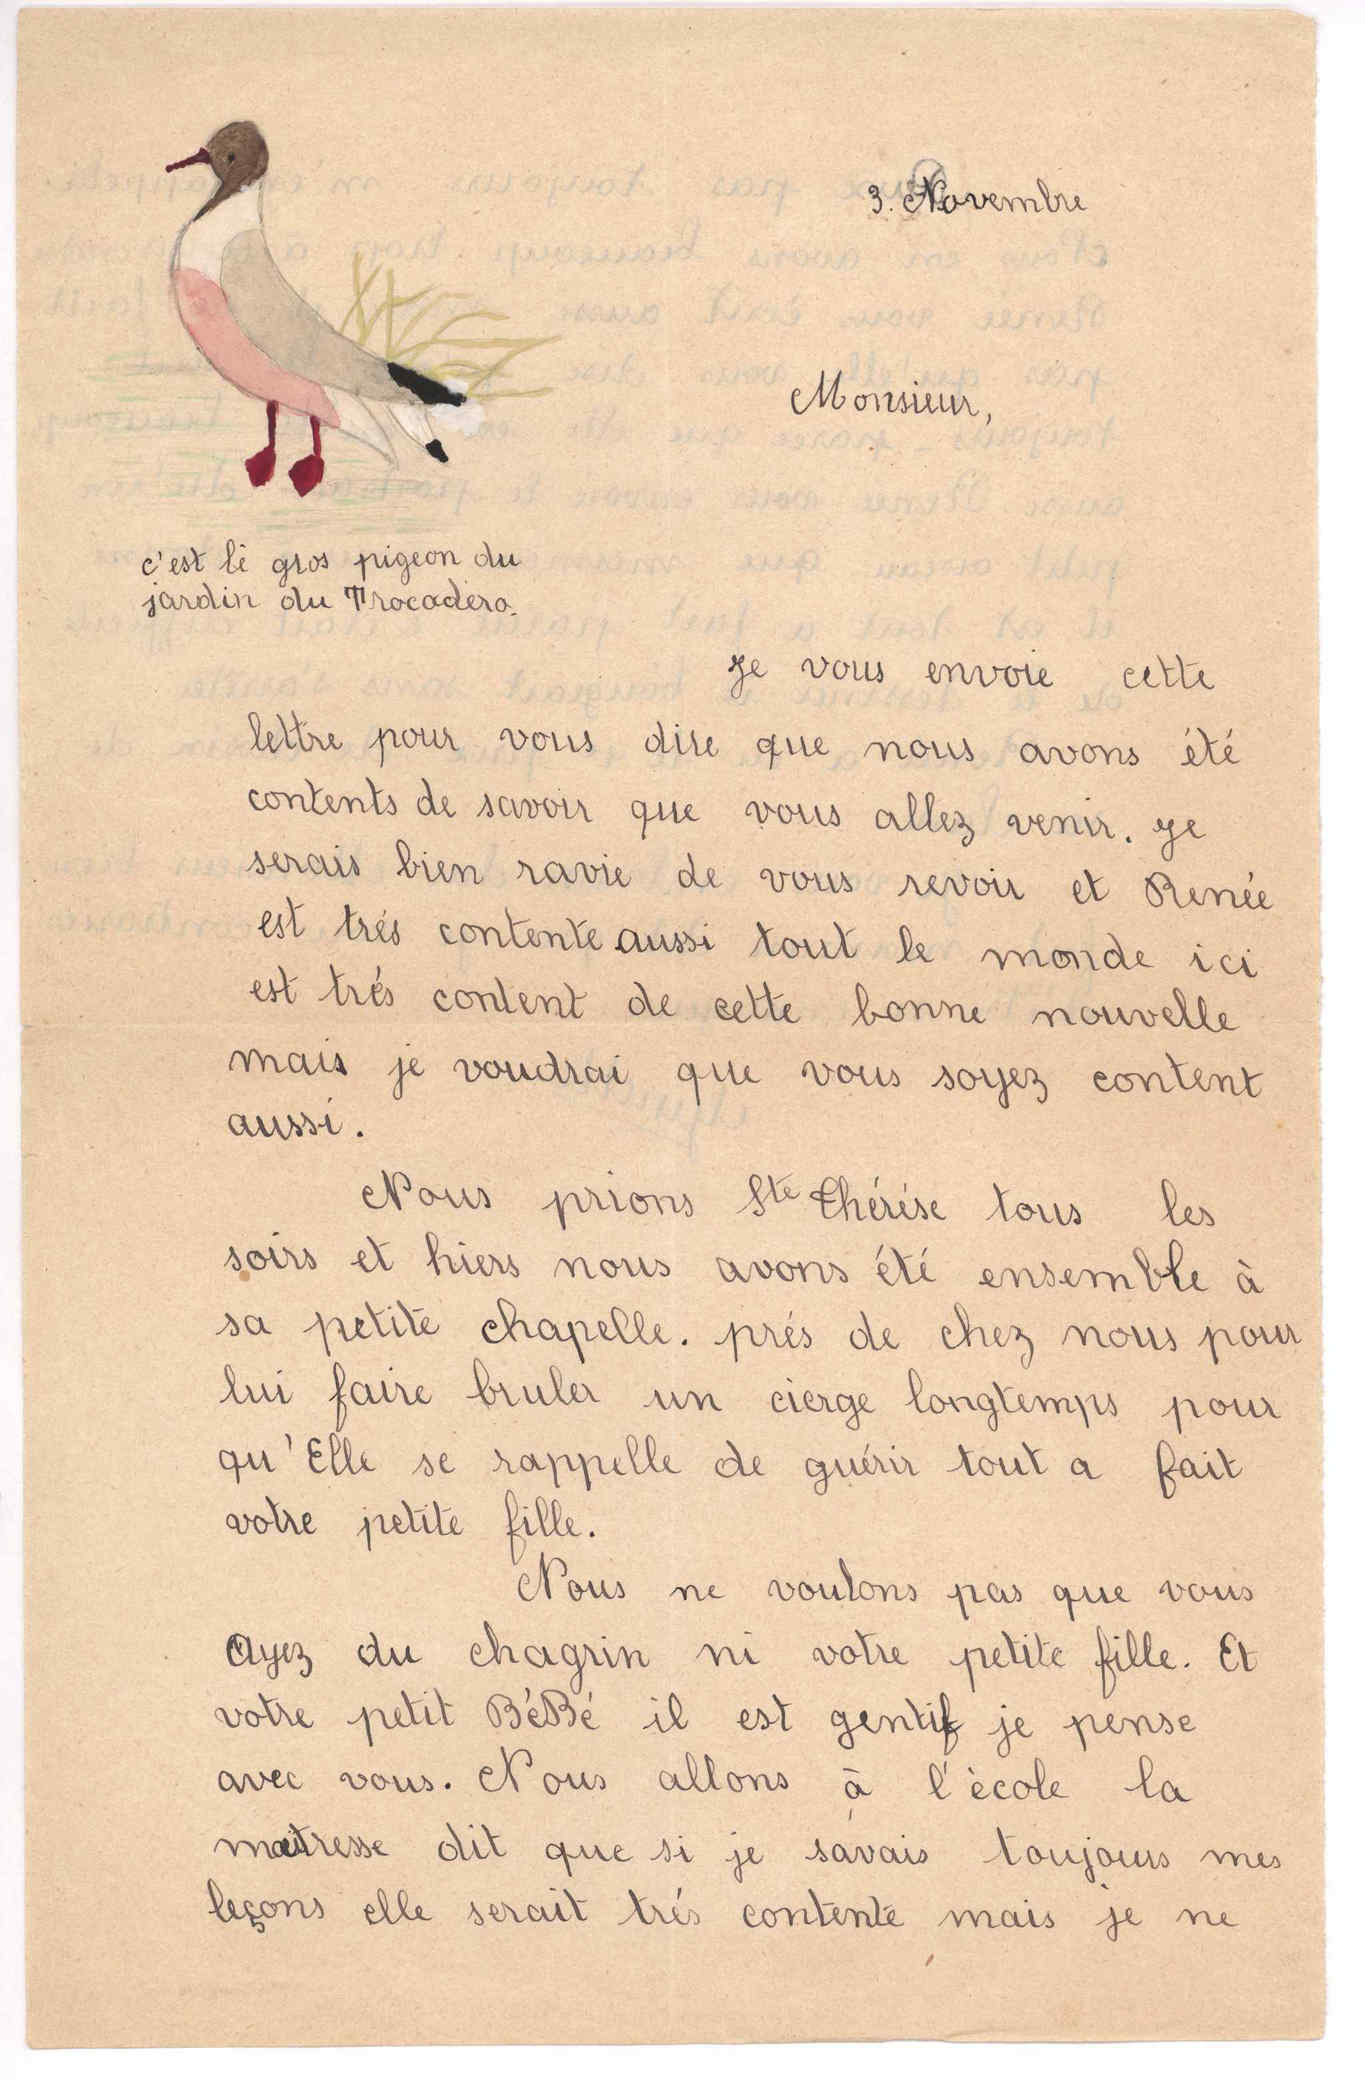 3. Novembre
Monsieur,
c'est le gros pigeon du
jardin du Trocadéro.
Je vous envoie cette
lettre pour vous dire que nous avons été
contents de savoir que vous allez venir. Je
serais bien ravie de vous revoir et Renée
est trés contente aussi tout le monde ici
est trés content de cette bonne nouvelle
mais je voudrai que vous soyez content
aussi.
Nous prions Ste Thérése tous les
soirs et hiers nous avons été ensemble à
sa petite chapelle. prés de chez nous pour
lui faire bruler un cierge longtemps pour
qu'Elle se rappelle de guérir tout a fait
votre petite fille.
Nous ne voulons pas que vous
Ayez du chagrin ni votre petite fille. Et
votre petit BéBé il est gentil je pense
avec vous. Nous allons à l'école la
maitresse dit que si je savais toujours mes
leçons elle serait trés contente mais je ne